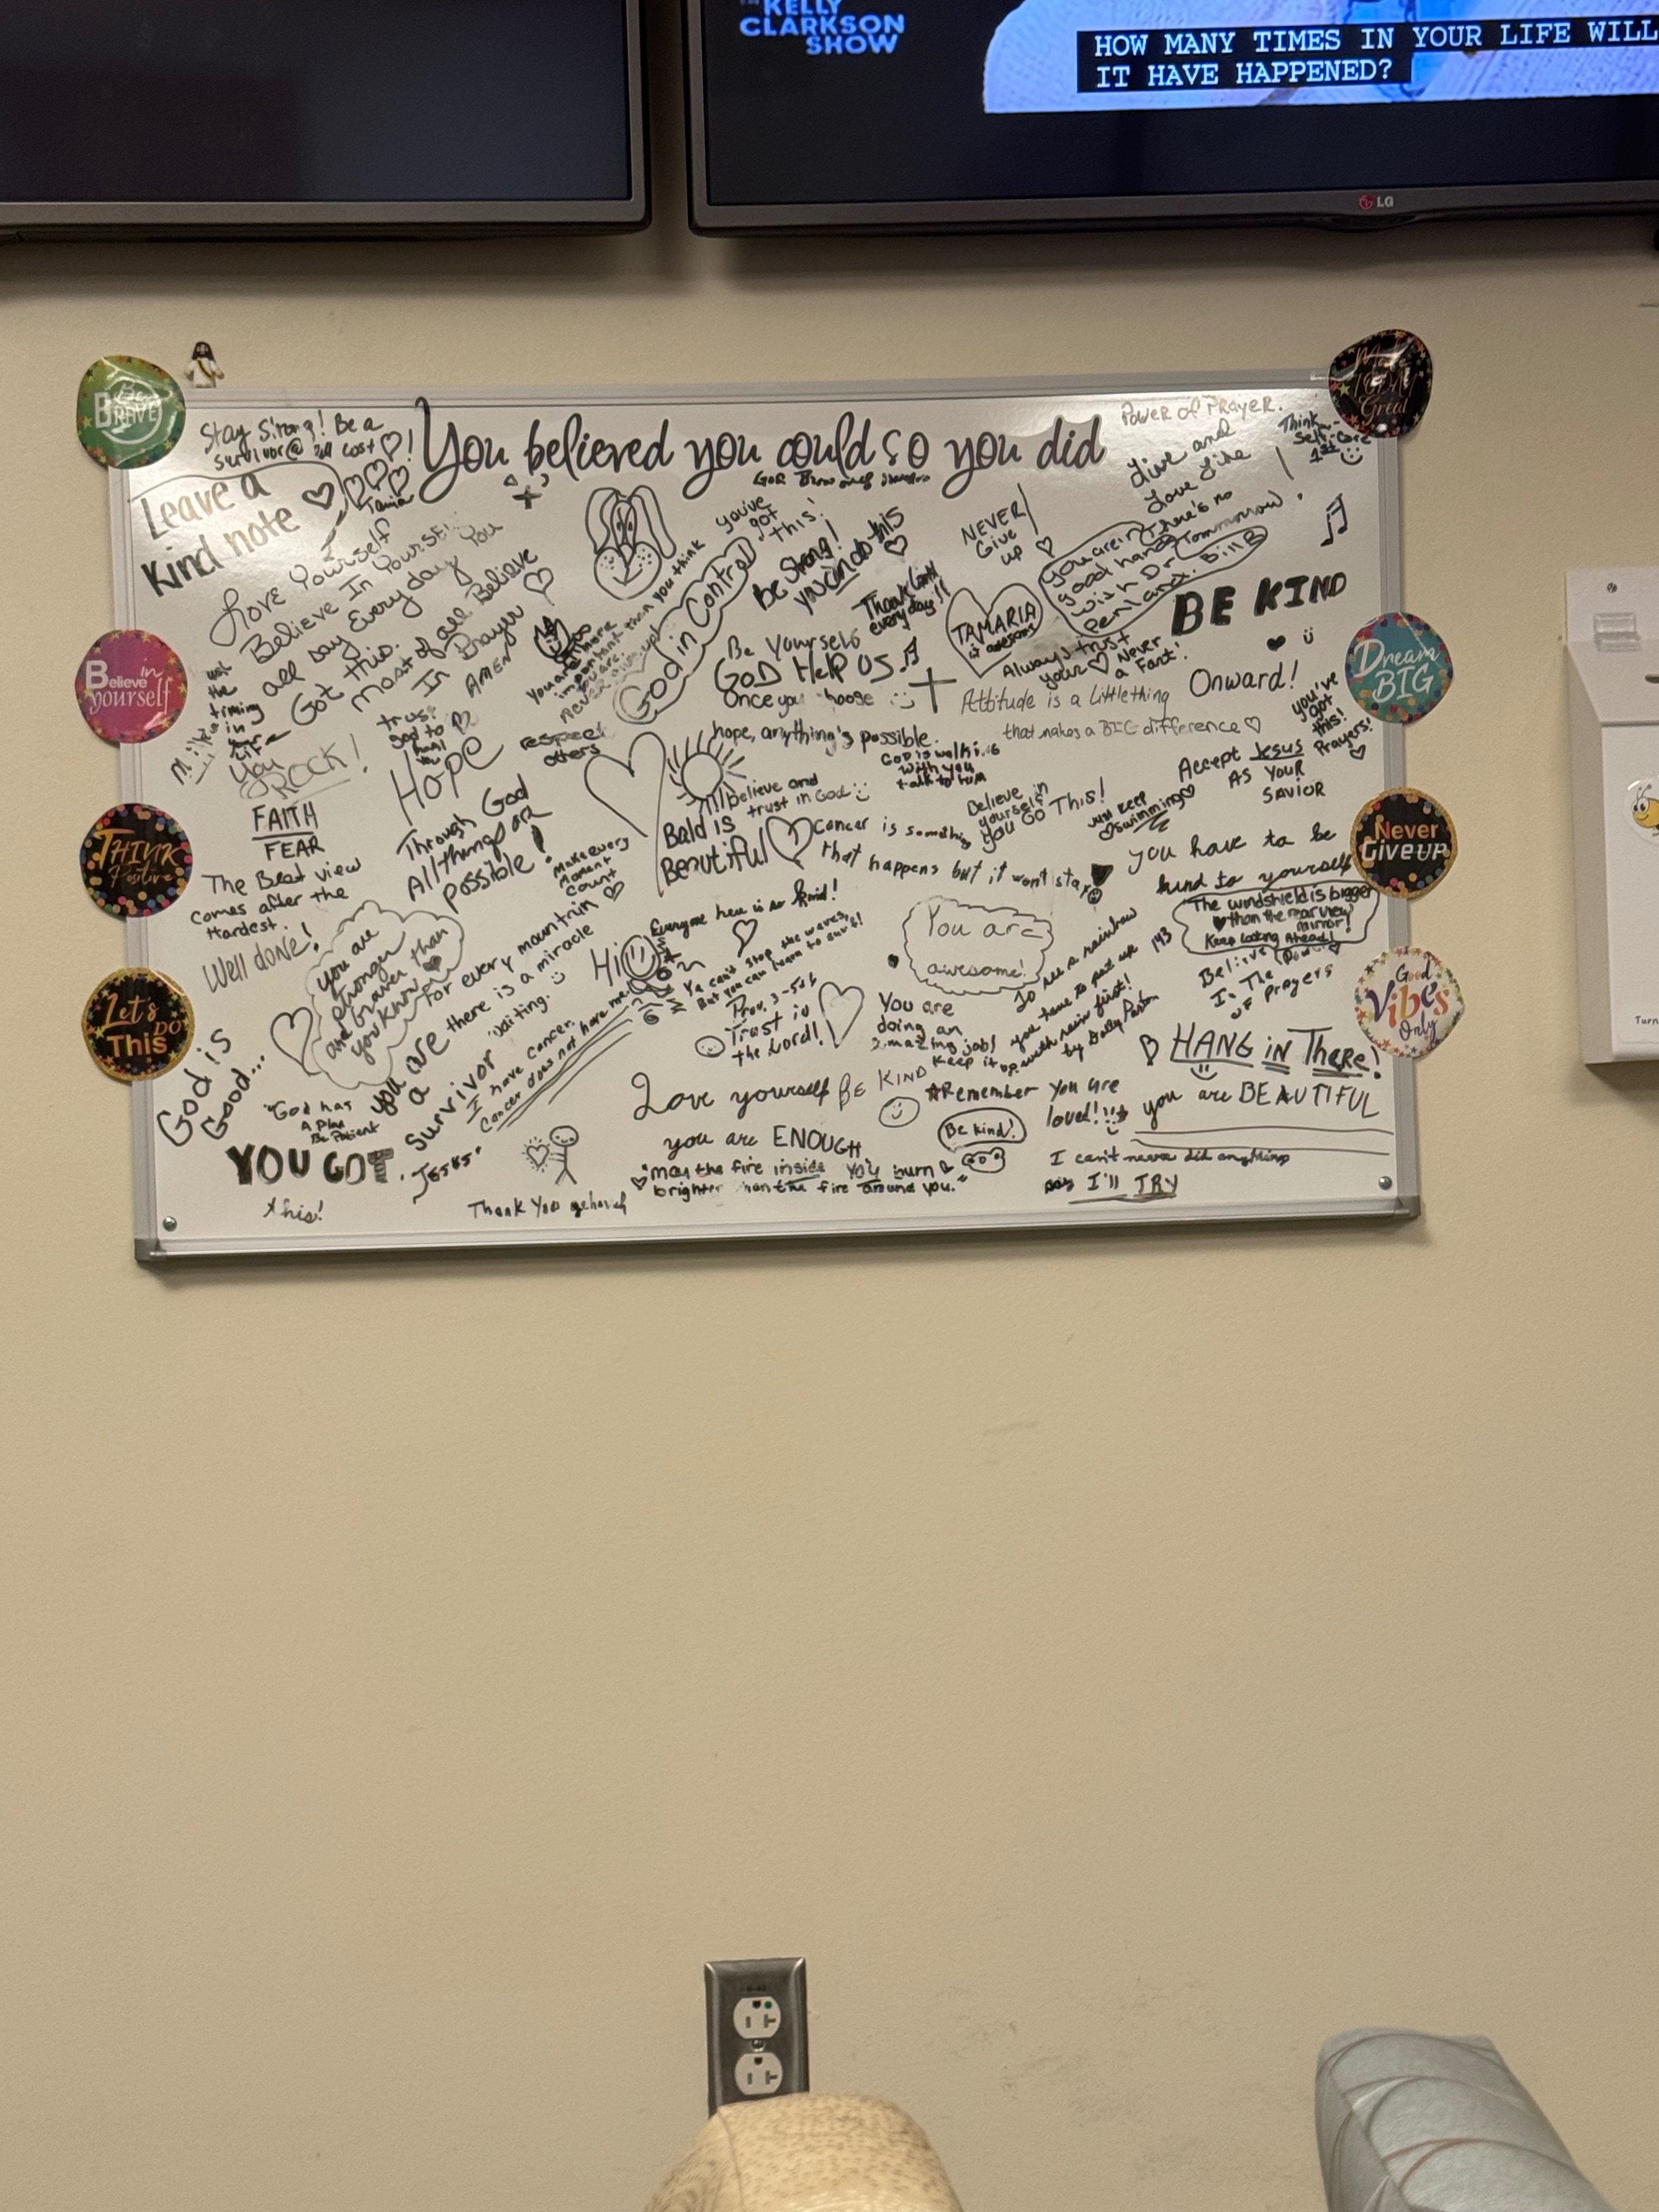 KELLY
CLARKSON
SHOW
HOW MANY TIMES IN YOUR LIFE WILL
IT HAVE HAPPENED?
LG
Be
BRAVE
Make
TODAY
Great
Stay Strong! Be a
survivor@ all cost!
Tania
You believed you could so you did
Power of Prayer.
Think
Self-Care
1st
Leave a
Kind note
Live and
Love like
there's no
Tommorrow!
Love Yourself
Believe In Yourself
all day Every day You
Got this.
most of all Believe
In Prayer
AMEN
You've
got
this!
God in Control
Be Strong!
you can do this
Thank God
everyday!!
NEVER
Give
up
TAMARIA
is awesome
you are in
good hands
with Dr
Penland. Bill B
BE KIND
You are more
important than you think
you are.
never give up!
Be Yourself
GOD Help US.
Once you choose
hope, anything's possible.
Always trust
your Never
a Fart!
Attitude is a little thing
that makes a BIG difference
Onward!
you've
got
this!
Prayers!
Believe in
yourself
Dream
BIG
timing
in
your
life
You
ROCK!
trust
god to
heal
you
Hope
respect
others
FAITH
FEAR
Through God
All things are
possible!
believe and
trust in God
God is walking
with you
talk to him
Believe in
yourself
you GO This!
Just keep
swimming
Accept Jesus
AS YOUR
SAVIOR
Bald is
Beautiful
Cancer is something
that happens but it won't stay
you have to be
kind to yourself
THINK
Positive
Never
GIVE UP
The Best view
comes after the
Hardest.
Make every
Moment
Count
The windshield is bigger
than the rear view
mirror!
Keep looking Ahead!
Well done!
you are
stronger
and braver than
you know
for every mountain
there is a miracle
waiting.
Hi
Everyone here is so kind!
Ya can't stop the waves,
But you can learn to surf!
Prov. 3-5&6
Trust in
the Lord!
You are
awesome!
You are
doing an
amazing job!
Keep it up
To see a rainbow
you have to put up
with rain first!
by Dolly Parton
143
Believe
In The Power
of prayers
Good
Vibes
Only
Let's
DO
This
God is
Good...
"God has
A Plan
Be Patient
you are
a
Survivor
I have cancer.
Cancer does not have me!
Love yourself
BE KIND
Remember you are
loved!!!
HANG IN THERE!
you are BEAUTIFUL
YOU GOT
this!
Thank You
you are ENOUGH
Be kind!
"may the fire inside you burn
brighter than the fire around you."
I can't never did anything
say I'll TRY